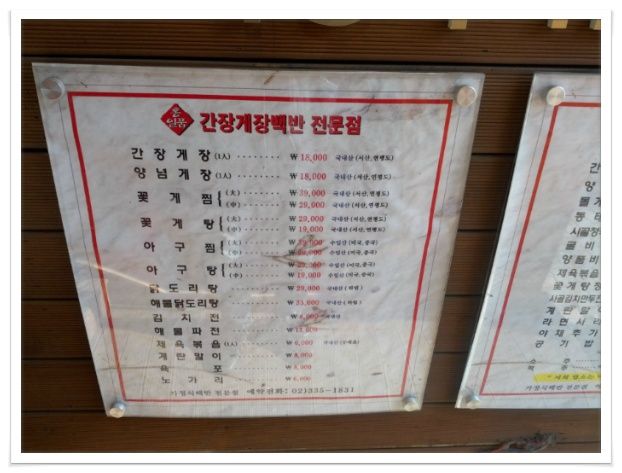 일품 간장게장백반 전문점
간장게장 (1人) ········ ₩ 18,000 국내산 (서산,연평도)
양념게장 (1人) ········ ₩ 18,000 국내산 (서산,연평도)
꽃게찜 (大) ········ ₩ 39,000 국내산 (서산,연평도)
(中) ········ ₩ 29,000 국내산 (서산,연평도)
꽃게탕 (大) ········ ₩ 29,000 국내산 (서산,연평도)
(中) ········ ₩ 19,000 국내산 (서산,연평도)
아구찜 (大) ········ ₩ 수입산 (미국,중국)
(中) ········ ₩ 수입산 (미국,중국)
아구탕 (大) ········ ₩ 수입산 (미국,중국)
(中) ········ ₩ 19,000 수입산 (미국,중국)
닭도리탕 ········ ₩ 국내산
해물닭도리탕 ········ ₩ 35,000 국내산
김치전 ········ ₩
해물파전 ········ ₩
제육볶음 (1人) ········ ₩ 6,000 국내산
계란말이 ········ ₩ 8,000
육포 ········ ₩
노가리 ········ ₩
가정식백반 전문점 예약전화: 02)335-1831
간
양
돌게
동태
시골청
굴비
양푼비
제육볶음
꽃게탕정
시골김치만두전
계란말이
라면사리
야채추가
공기밥
소주